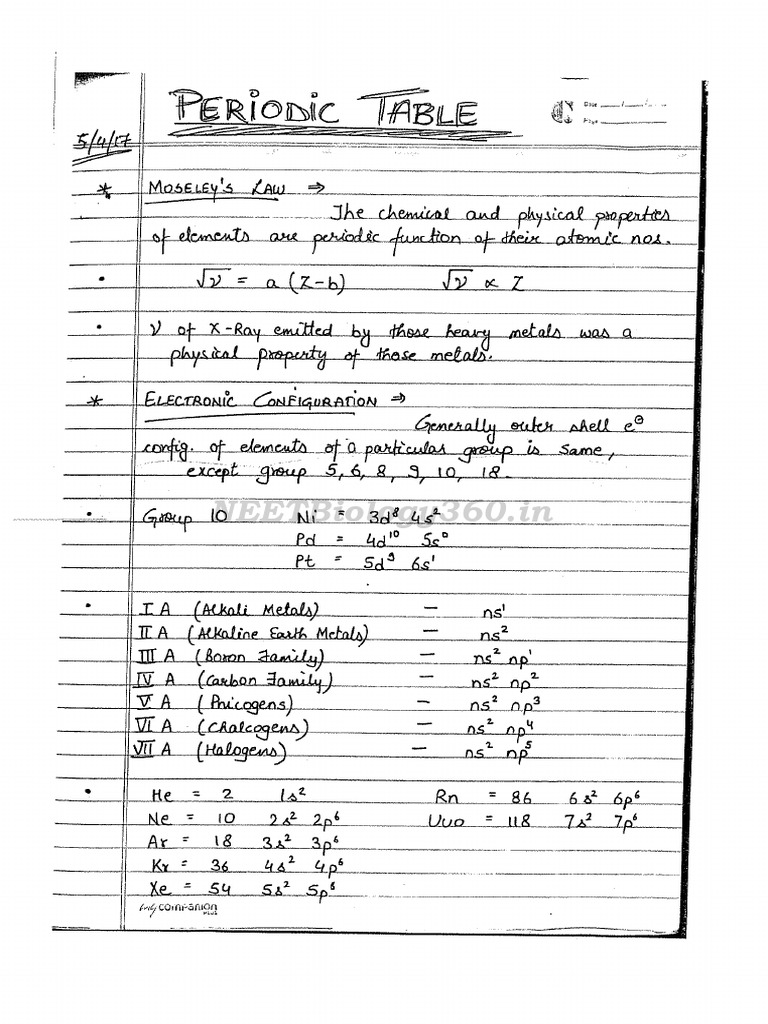 PERIODIC TABLE
Date
Page
5/4/17
* MOSELEY'S LAW ⇒
The chemical and physical properties
of elements are periodic function of their atomic nos.
• √ν = a (Z-b) √ν ∝ Z
• ν of X-Ray emitted by those heavy metals was a
physical property of those metals.
* ELECTRONIC CONFIGURATION ⇒
Generally outer shell e⊖
config. of elements of a particular group is same,
except group 5, 6, 8, 9, 10, 18.
NEETBiology360.in
• Group 10 Ni = 3d⁸ 4s²
Pd = 4d¹⁰ 5s⁰
Pt = 5d⁹ 6s¹
• I A (Alkali Metals) — ns¹
II A (Alkaline Earth Metals) — ns²
III A (Boron Family) — ns² np¹
IV A (Carbon Family) — ns² np²
V A (Pnicogens) — ns² np³
VI A (Chalcogens) — ns² np⁴
VII A (Halogens) — ns² np⁵
• He = 2 1s² Rn = 86 6s² 6p⁶
Ne = 10 2s² 2p⁶ Uuo = 118 7s² 7p⁶
Ar = 18 3s² 3p⁶
Kr = 36 4s² 4p⁶
Xe = 54 5s² 5p⁶
companion